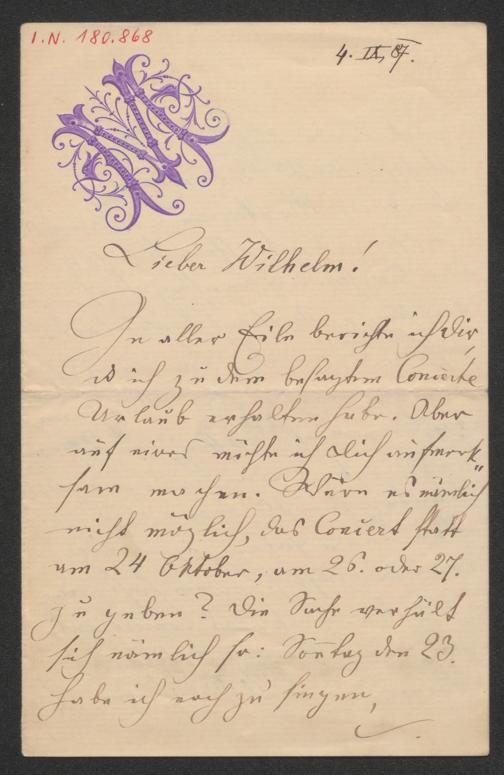 I.N. 180.868
4. IX, 87.
Lieber Wilhelm!
In aller Eile berichte ich Dir,
ich zu dem besagtem Concerte
Urlaub erhalten habe. Aber
auf eines möchte ich Dich aufmerk„
sam machen. Wäre es nämlich
nicht möglich, das Concert statt
am 24 Oktober, am 26. oder 27.
zu geben? Die Sache verhält
sich nämlich so: Sontag den 23.
habe ich noch zu singen,